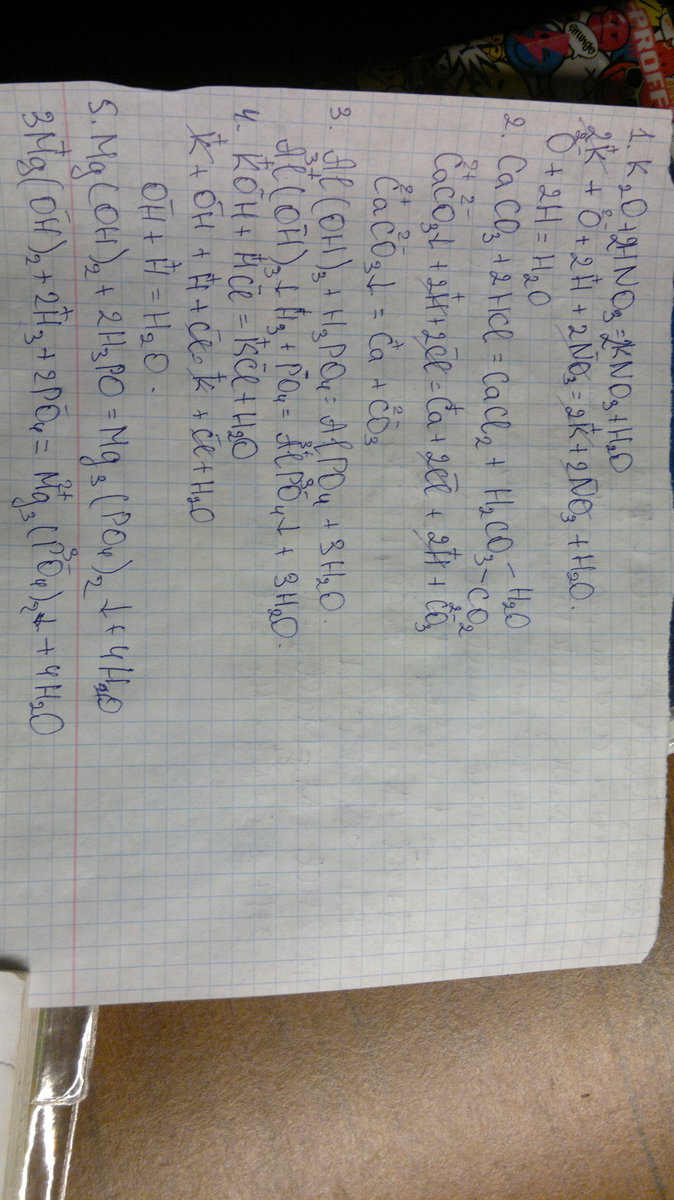 1. K₂O + 2HNO₃ = 2KNO₃ + H₂O
2K⁺ + O²⁻ + 2H⁺ + 2NO₃⁻ = 2K⁺ + 2NO₃⁻ + H₂O.
O²⁻ + 2H = H₂O
2. CaCO₃ + 2HCl = CaCl₂ + H₂CO₃ – H₂O
CO₂
Ca²⁺CO₃²⁻↓ + 2H⁺ + 2Cl⁻ = Ca⁺ + 2Cl⁻ + 2H⁺ + CO₃²⁻
Ca²⁺CO₃²⁻↓ = Ca⁺ + CO₃²⁻
3. Al(OH)₃ + H₃PO₄ = AlPO₄ + 3H₂O.
Al³⁺(OH⁻)₃↓ + H₃⁺ + PO₄⁻ = Al³⁺PO₄³⁻↓ + 3H₂O.
4. K⁺OH⁻ + H⁺Cl⁻ = K⁺Cl⁻ + H₂O
K⁺ + OH⁻ + H⁺ + Cl⁻ = K⁺ + Cl⁻ + H₂O
OH⁻ + H⁺ = H₂O.
5. Mg(OH)₂ + 2H₃PO = Mg₃(PO₄)₂↓ + 4H₂O
3Mg⁺(OH⁻)₂ + 2H₃⁺ + 2PO₄⁻ = Mg₃²⁺(PO₄³⁻)₂↓ + 4H₂O
PROFF